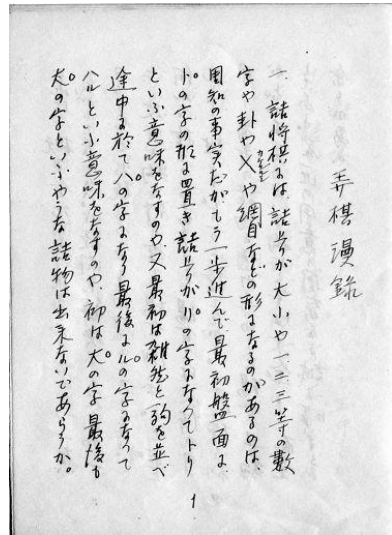 弄棋漫録
一、詰将棋には、詰上りが大小や一二三等の数
字や卦や×や網目などの形になるのがあるのは、
周知の事実だがもう一歩進んで、最初盤面に
トの字の形に置き詰上りがリの字になつてトリ
といふ意味をなすのや、又最初は雑然と駒を並べ
途中に於てハの字になり最後にルの字になつて
ハルといふ意味をなすのや、初は大の字 最後も
犬の字といふやうな詰物は出来ないであらうか。
1